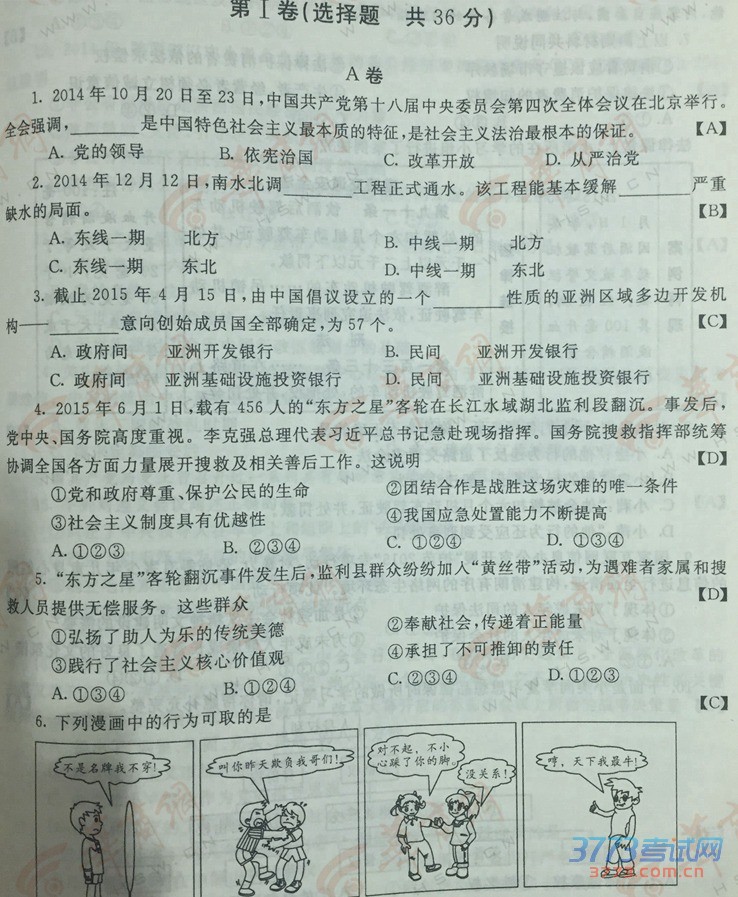 第Ⅰ卷(选择题 共36分)
A卷
1. 2014年10月20日至23日,中国共产党第十八届中央委员会第四次全体会议在北京举行。
全会强调,________是中国特色社会主义最本质的特征,是社会主义法治最根本的保证。 【A】
A. 党的领导 B. 依宪治国 C. 改革开放 D. 从严治党
2. 2014年12月12日,南水北调________工程正式通水。该工程能基本缓解________严重
缺水的局面。 【B】
A. 东线一期 北方 B. 中线一期 北方
C. 东线一期 东北 D. 中线一期 东北
3. 截止2015年4月15日,由中国倡议设立的一个________性质的亚洲区域多边开发机
构——________意向创始成员国全部确定,为57个。 【C】
A. 政府间 亚洲开发银行 B. 民间 亚洲开发银行
C. 政府间 亚洲基础设施投资银行 D. 民间 亚洲基础设施投资银行
4. 2015年6月1日,载有456人的“东方之星”客轮在长江水域湖北监利段翻沉。事发后,
党中央、国务院高度重视。李克强总理代表习近平总书记急赴现场指挥。国务院搜救指挥部统筹
协调全国各方面力量展开搜救及相关善后工作。这说明 【D】
①党和政府尊重、保护公民的生命 ②团结合作是战胜这场灾难的唯一条件
③社会主义制度具有优越性 ④我国应急处置能力不断提高
A. ①②③ B. ②③④ C. ①②④ D. ①③④
5. “东方之星”客轮翻沉事件发生后,监利县群众纷纷加入“黄丝带”活动,为遇难者家属和搜
救人员提供无偿服务。这些群众 【D】
①弘扬了助人为乐的传统美德 ②奉献社会,传递着正能量
③践行了社会主义核心价值观 ④承担了不可推卸的责任
A. ①③④ B. ①②④ C. ②③④ D. ①②③
6. 下列漫画中的行为可取的是 【C】
不是名牌我不穿!
叫你昨天欺负我哥们!
对不起,不小
心踩了你的脚。
没关系!
哼,天下我最牛!
3773考试网
3773.com.cn